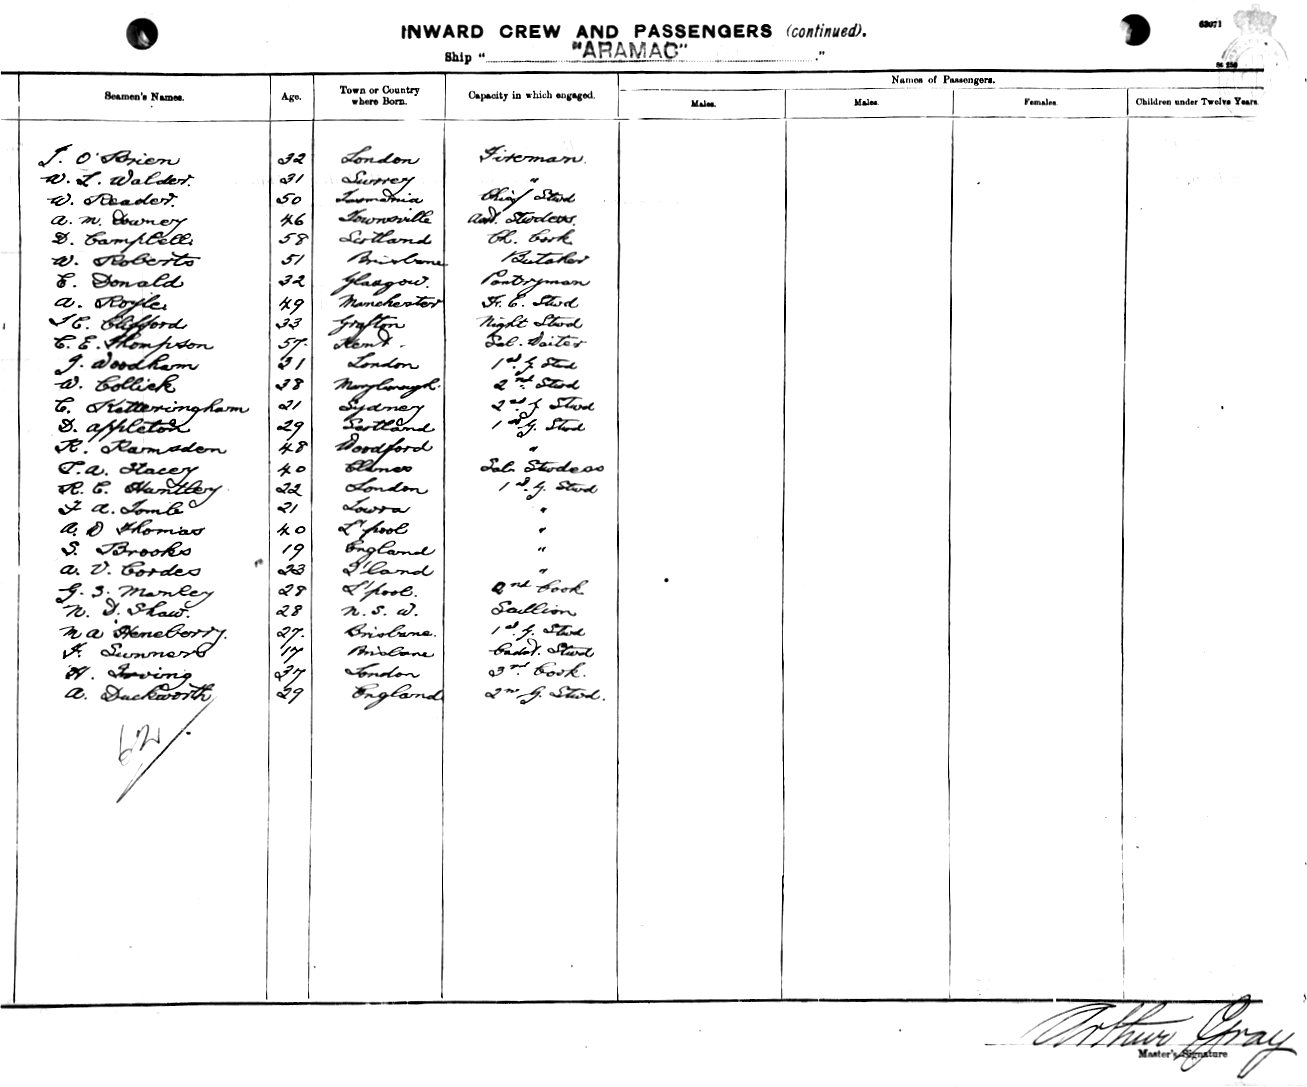 63071
INWARD CREW AND PASSENGERS (continued).
Ship "ARAMAC"
Seamen's Names. Age. Town or Country where Born. Capacity in which engaged. Names of Passengers.
Males. Males. Females. Children under Twelve Years.
J. O'Brien 32 London Fireman.
W. L. Walder. 31 Surrey "
W. Reader. 50 Tasmania Chief Stwd
A. M. Downey 46 Townsville Stwdess.
D. Campbell 58 Scotland Ch. Cook
W. Roberts 51 Brisbane Butcher
E. Donald 32 Glasgow. Pantryman
A. Royle 49 Manchester Fr. C. Stwd
T C. Clifford 33 Grafton Night Stwd
C. E. Thompson 57. Kent. Sal. Waiter
J. Woodham 21 London 1st. G Stwd
W. Collick 38 Maryborough. 2nd. Stwd
C. Ketteringham 21 Sydney 2nd. G Stwd
D. Appleton 29 Scotland 1st G. Stwd
R. Ramsden 48 Woodford "
T. A. Stacey 40 Sal. Stwdess
R. C. Huntley 22 London 1st. G. Stwd
F A. Tomle 21 "
A. D Thomas 40 L'pool "
S. Brooks 19 England "
A. V. Cordes 23 Q'land "
G. S. Manley 28 L'pool. 2nd Cook
N. D. Shaw. 28 N. S. W. Scullion
M A Heneberry. 27. Brisbane. 1st. G. Stwd
F. Sumners 17 Brisbane Cadet. Stwd
H. Irving 37 London 3rd. Cook.
A. Duckworth 29 England 2nd G. Stwd.
62/.
Arthur Gray
Master's Signature